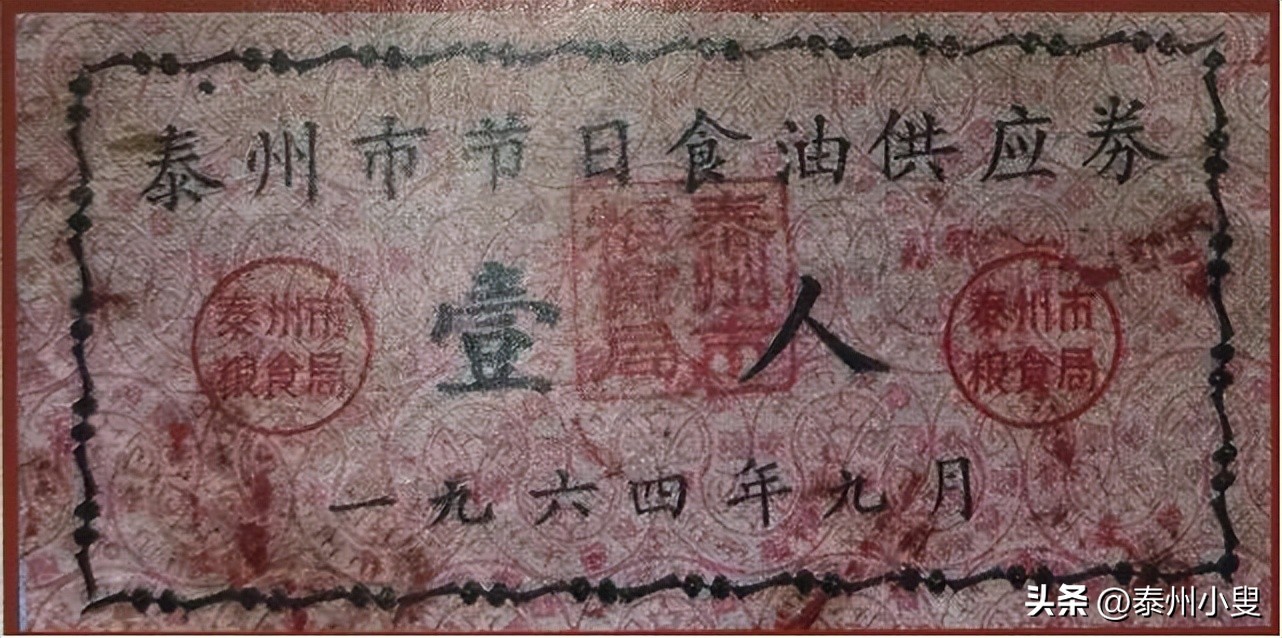 泰州市节日食油供应券
泰州市
粮食局
壹人
泰州市
粮食局
泰州市
粮食局
一九六四年九月
头条 @泰州小叟